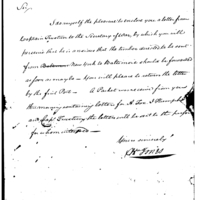 Sir,
I do myself the pleasure to enclose you a letter from
Captain to the Secretary of War, by which you will
perceive that he is anxious that the timber should be sent
from New York to Baltimore should be forwarded
as soon as maybe — You will please to return the letter
by the first Post — A Packet was received from you
this morning containing letters for
and Capt the letters will be sent to the person
for whom intended —
Yours sincerely
Jones